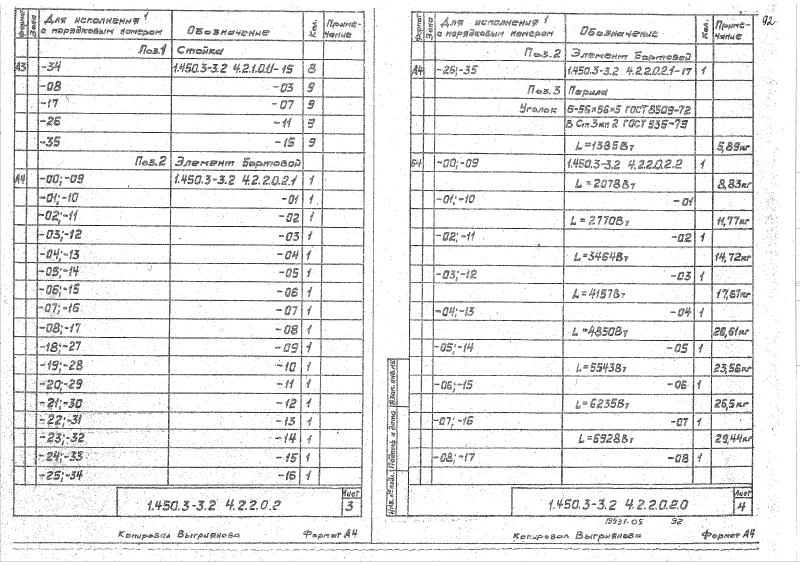 формат Зона Для исполнения 1 с порядковым номером Обозначение Кол. Приме-чание
Поз.1 Стойка
А3 -34 1.450.3-3.2 4.2.1.0.1/-15 8
-08 -03 9
-17 -07 9
-26 -11 9
-35 -15 9
Поз.2 Элемент бортовой
А4 -00;-09 1.450.3-3.2 4.2.2.0.2.1 1
-01;-10 -01 1
-02;-11 -02 1
-03;-12 -03 1
-04;-13 -04 1
-05;-14 -05 1
-06;-15 -06 1
-07;-16 -07 1
-08;-17 -08 1
-18;-27 -09 1
-19;-28 -10 1
-20;-29 -11 1
-21;-30 -12 1
-22;-31 -13 1
-23;-32 -14 1
-24;-33 -15 1
-25;-34 -16 1
1.450.3-3.2 4.2.2.0.2 Лист 3
Копировал Выгриянова Формат А4
92
формат Зона Для исполнения 1 с порядковым номером Обозначение Кол. Приме-чание
Поз.2 Элемент бортовой
А4 -26;-35 1.450.3-3.2 4.2.2.0.2.1-17 1
Поз.3 Перила
Уголок Б-56×56×5 ГОСТ 8509-72
В Ст3кп2 ГОСТ 535-79
L=1385Вт 5,89кг
Б4 -00;-09 1.450.3-3.2 4.2.2.0.2.2 1
L=2078Вт 8,83кг
-01;-10 -01
L=2770Вт 11,77кг
-02;-11 -02 1
L=3464Вт 14,72кг
-03;-12 -03 1
L=4157Вт 17,67кг
-04;-13 -04 1
L=4850Вт 20,61кг
-05;-14 -05 1
L=5543Вт 23,56кг
-06;-15 -06 1
L=6235Вт 26,5кг
-07;-16 -07 1
L=6928Вт 29,44кг
-08;-17 -08 1
Инв.№подл. Подпись и дата Взам.инв.№
1.450.3-3.2 4.2.2.0.2.0 Лист 4
19931-05 92
Копировал Выгриянова Формат А4